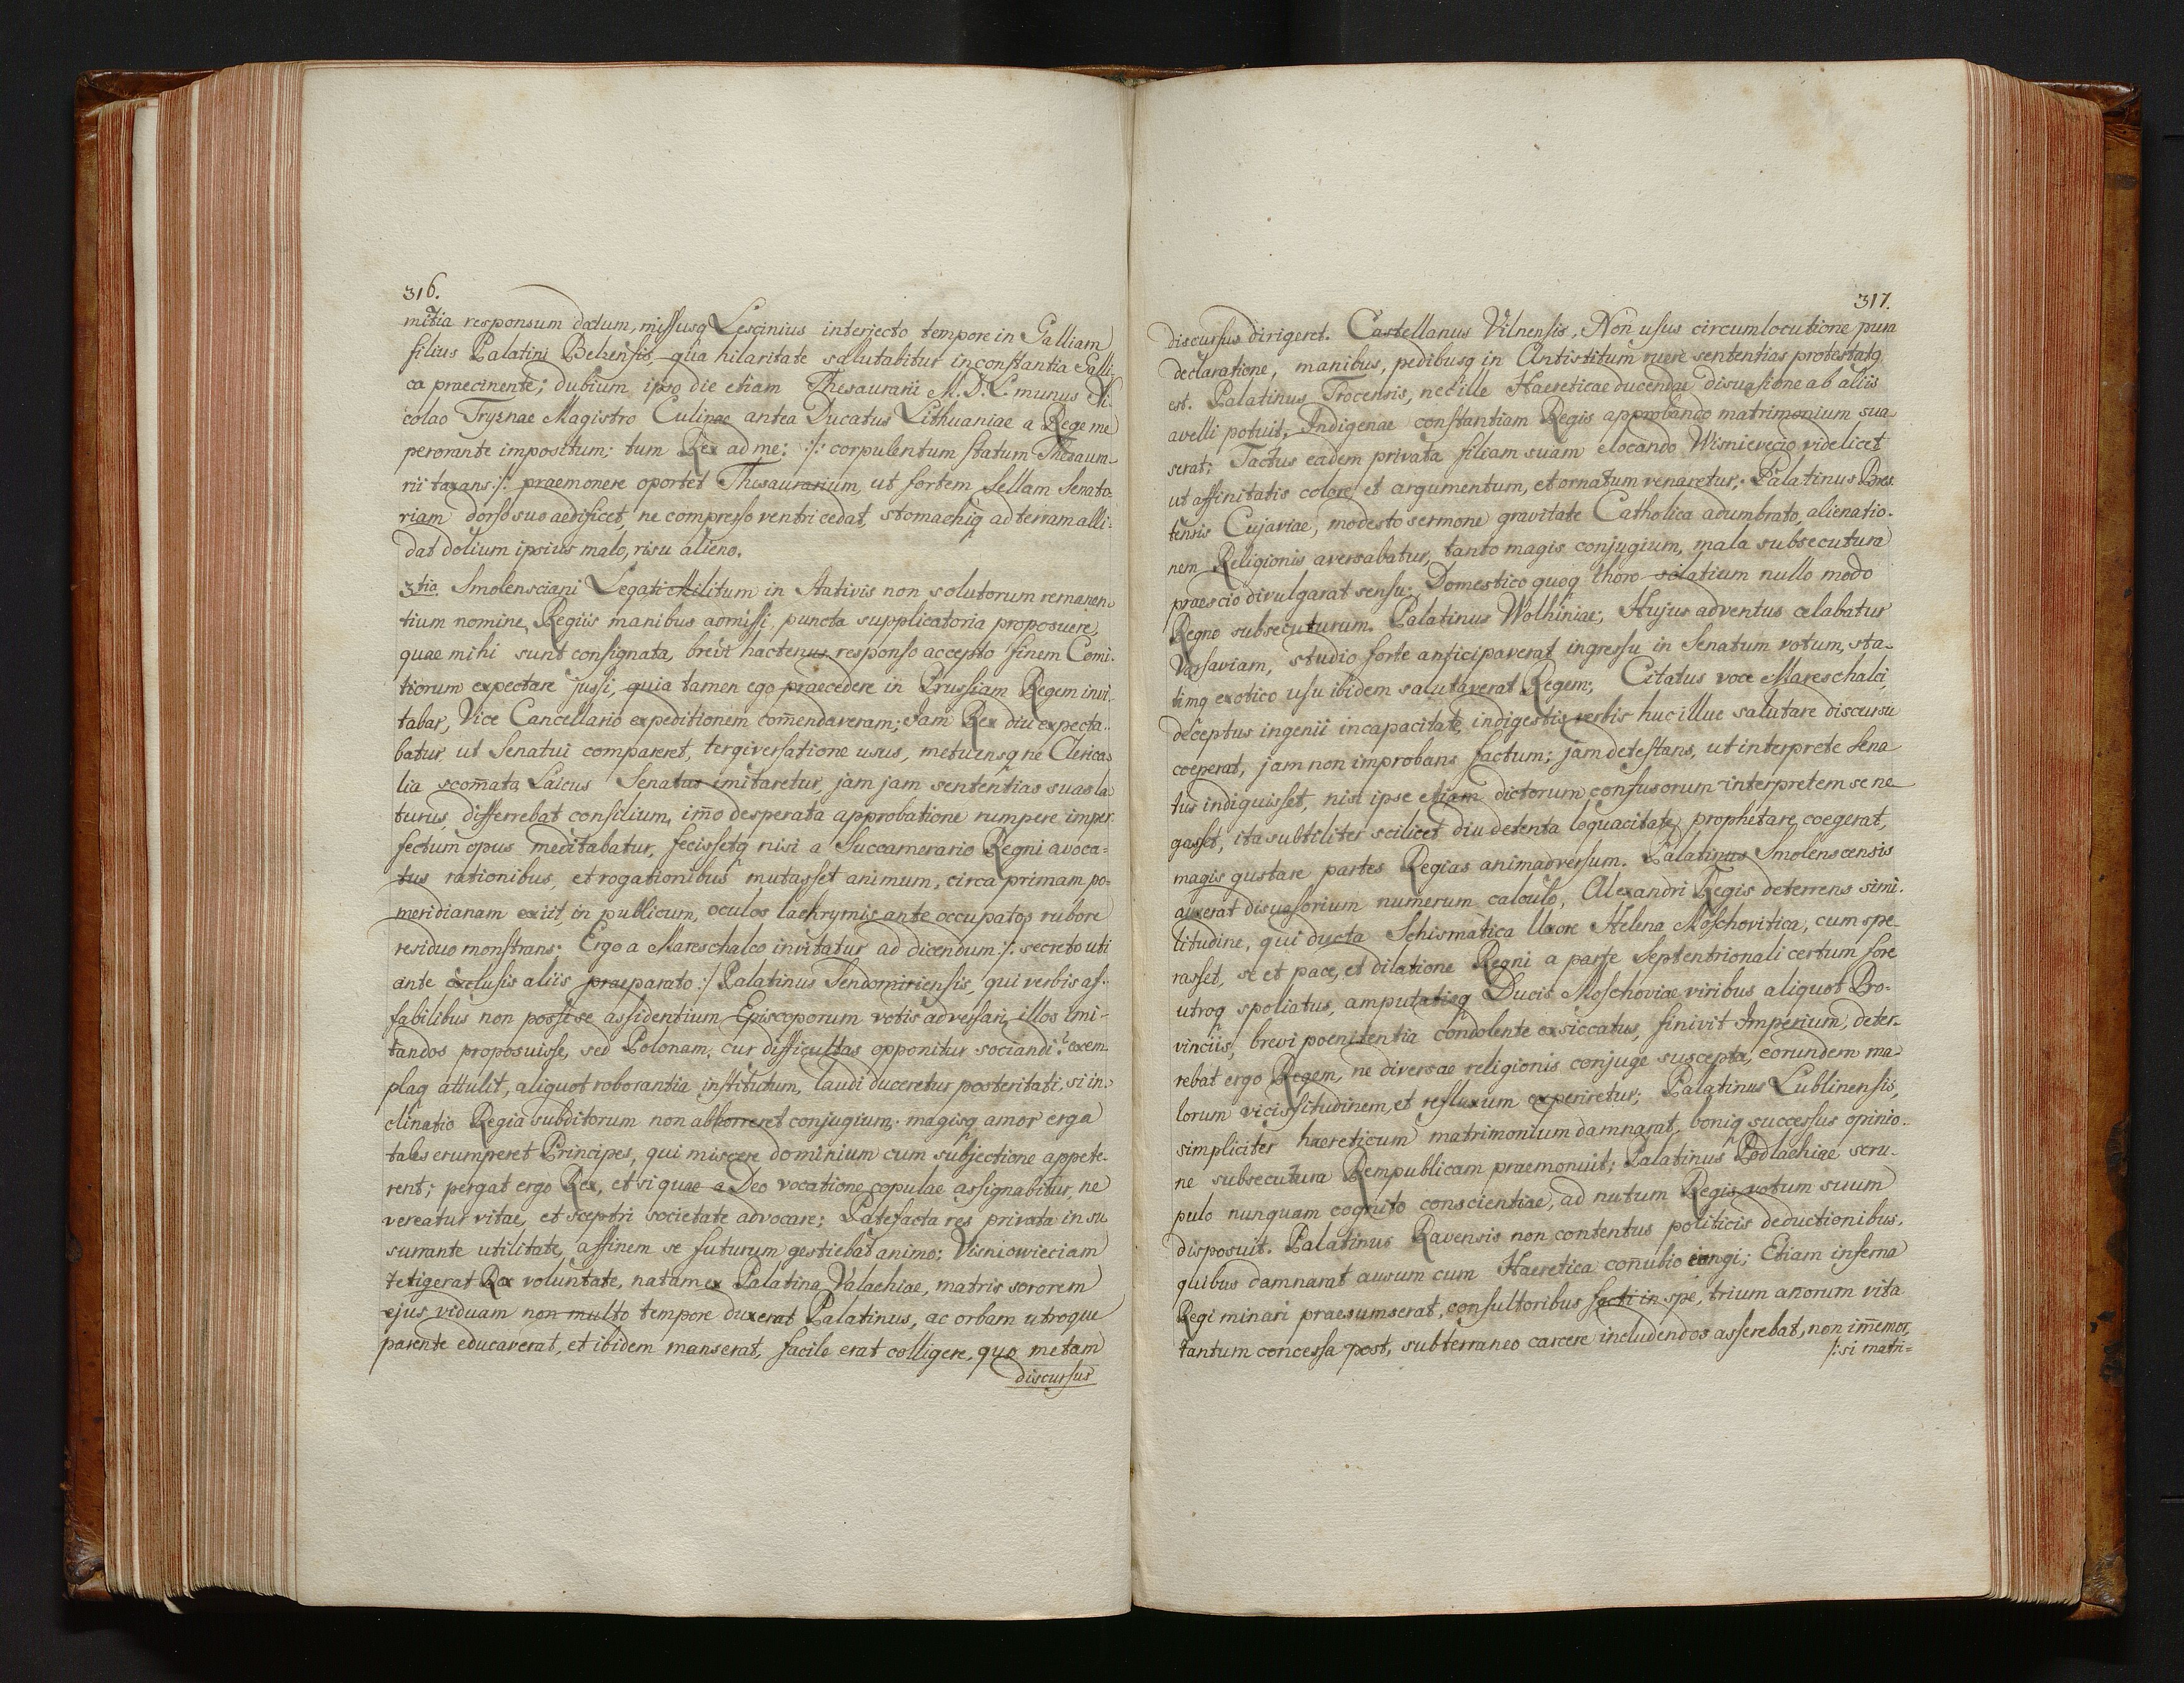 316.
mitia responsum datum, missusq Lescinius interjecto tempore in Galliam
filius Palatini Belzensis, qua hilaritate salutabitur inconstantia Galli-
ca praecinente; dubium ipso die etiam Thesaurarii M. D. L. munus Ni-
colao Tryznae Magistro Culinae antea Ducatus Lithuaniae a Rege me
perorante impositum; tum Rex ad me: :/: corpulentum statum Thesaura-
rii taxans :/: praemonere oportet Thesaurarium, ut fortem Sellam Senato-
riam dorso suo aedificet, ne compresso ventri cedat, stomachiq ad terram alli-
dat dolium ipsius malo, risu alieno.
3tia Smolensciani Legati Militum in Stativis non solutorum remanen-
tium nomine, Regiis manibus admissi, puncta supplicatoria proposuere,
quae mihi sunt consignata, brevi hactenus responso accepto finem Comi-
tiorum expectare jussi, quia tamen ego praecedere in Prussiam Regem invi-
tabar, Vice Cancellario expeditionem com̄endaveram; Jam Rex diu expecta-
batur, ut Senatui compareret, tergiversatione usus, metuensq ne Clerica-
lia scom̄ata Laicus Senatus imitaretur, jam jam sententias suas la-
turus, differrebat consilium, im̄o desperata approbatione rumpere imper-
fectum opus meditabatur, fecissetq nisi a Succamerario Regni avoca-
tus rationibus, et rogationibus mutasset animum, circa primam po-
meridianam exiit, in publicum, oculos lachrymis ante occupatos rubore
residuo monstrans. Ergo a Mareschalco invitatur ad dicendum :/: secreto uti
ante exclusis aliis praeparato :/ Palatinus Sendomiriensis, qui verbis af-
fabilibus non posse se assidentium Episcoporum votis adversari, illos imi-
tandos proposuisse, sed Polonam, cur difficultas opponitur sociandi? exem-
plaq attulit, aliquot roborantia institutum, laudi duceretur posteritati, si in-
clinatio Regia subditorum non abhorreret conjugium, magisq amor erga
tales erumperet Principes, qui miscere dominium cum subjectione appete-
rent; pergat ergo Rex, et si quae a Deo vocatione copulae assignabitur, ne
vereatur vitae, et sceptri societate advocare; Patefacta res privata insu-
surrante utilitate, affinem se futurum gestiebat animo; Visniowieciam
tetigerat Rex voluntate, natam ex Palatina Valachiae, matris sororem
ejus viduam non multo tempore duxerat Palatinus, ac orbam utroque
parente educaverat, et ibidem manserat, facile erat colligere, quo metam
discursus
317.
discursus dirigeret. Castellanus Vilnensis, Non usus circumlocutione pura
declaratione, manibus, pedibusq in Antistitum ruere sententias protestatq
est. Palatinus Trocensis, nec ille Haereticae ducendae disuasione ab aliis
avelli potuit, Indigenae constantiam Regis approbando matrimonium sua-
serat; Tactus eadem privata filiam suam elocando Wisnievecio videlicet
ut affinitatis colore, et argumentum, et ornatum venaretur; Palatinus Bres-
tensis Cujaviae, modesto sermone gravitate Catholica adumbrato, alienatio-
nem Religionis aversabatur, tanto magis conjugium, mala subsecutura
praescio divulgarat sensu; Domestico quoq thoro solatium nullo modo
Regno subsecuturum. Palatinus Wolhiniae; Hujus adventus celabatur
Varsaviam, studio forte anticipaverat ingressu in Senatum votum, sta-
timq exotico usu ibidem salutaverat Regem; Citatus voce Mareschalci,
deceptus ingenii incapacitate, indigestis verbis huc illuc salutare discursu
coeperat, jam non improbans factum; jam detestans, ut interprete Sena-
tus indiguisset, nisi ipse etiam dictorum confusorum interpretem se ne-
gasset, ita subtiliter scilicet diu detenta loquacitate, prophetare coegerat,
magis gustare partes Regias animadversum. Palatinus Smolenscensis
auxerat disuasorium numerum calculo, Alexandri Regis deterrens simi-
litudine, qui ducta Schismatica Uxore Helena Moschovitica, cum spe-
rasset, se et pace, et dilatione Regni a parte Septentrionali certum fore
utroq spoliatus, amputatisq Ducis Moschoviae viribus aliquot Pro-
vinciis, brevi poenitentia condolente exsiccatus, finivit Imperium, deter-
rebat ergo Regem, ne diversae religionis conjuge suscepta, eorundem ma-
lorum vicissitudinem, et refluxum experiretur; Palatinus Lublinensis,
simpliciter haereticum matrimonium damnarat, boniq successus opinio-
ne subsecutura Rempublicam praemonuit; Palatinus Podlachiae scru-
pulo nunquam cognito conscientiae, ad nutum Regis votum suum
disposuit. Palatinus Ravensis non contentus politicis deductionibus,
quibus damnarat ausum cum Haeretica con̄ubio iungi; Etiam inferna
Regi minari praesumserat, consultoribus facti in spe, trium an̄orum vita
tantum concessa post, subterraneo carcere includendos asserebat, non im̄emor,
/: si matri=